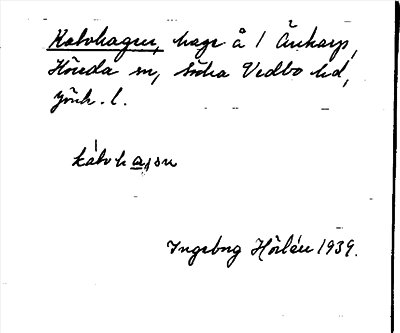 Kalvhagen, hage å 1 Änkarp,
Höreda sn, Södra Vedbo hd,
Jönk. l.
kálvhagən
Ingeborg Hörlén 1939.